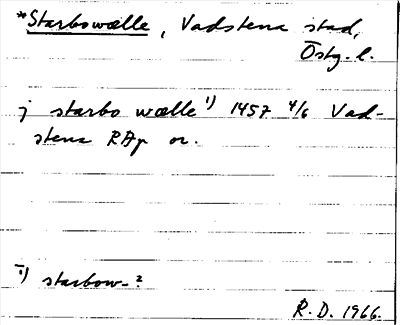 *Starbowælle, Vadstena stad,
Östg. l.
j starbo wælle ¹) 1457 4/6 Vad-
stena RAp or.
¹) starbow-?
R.D. 1966.